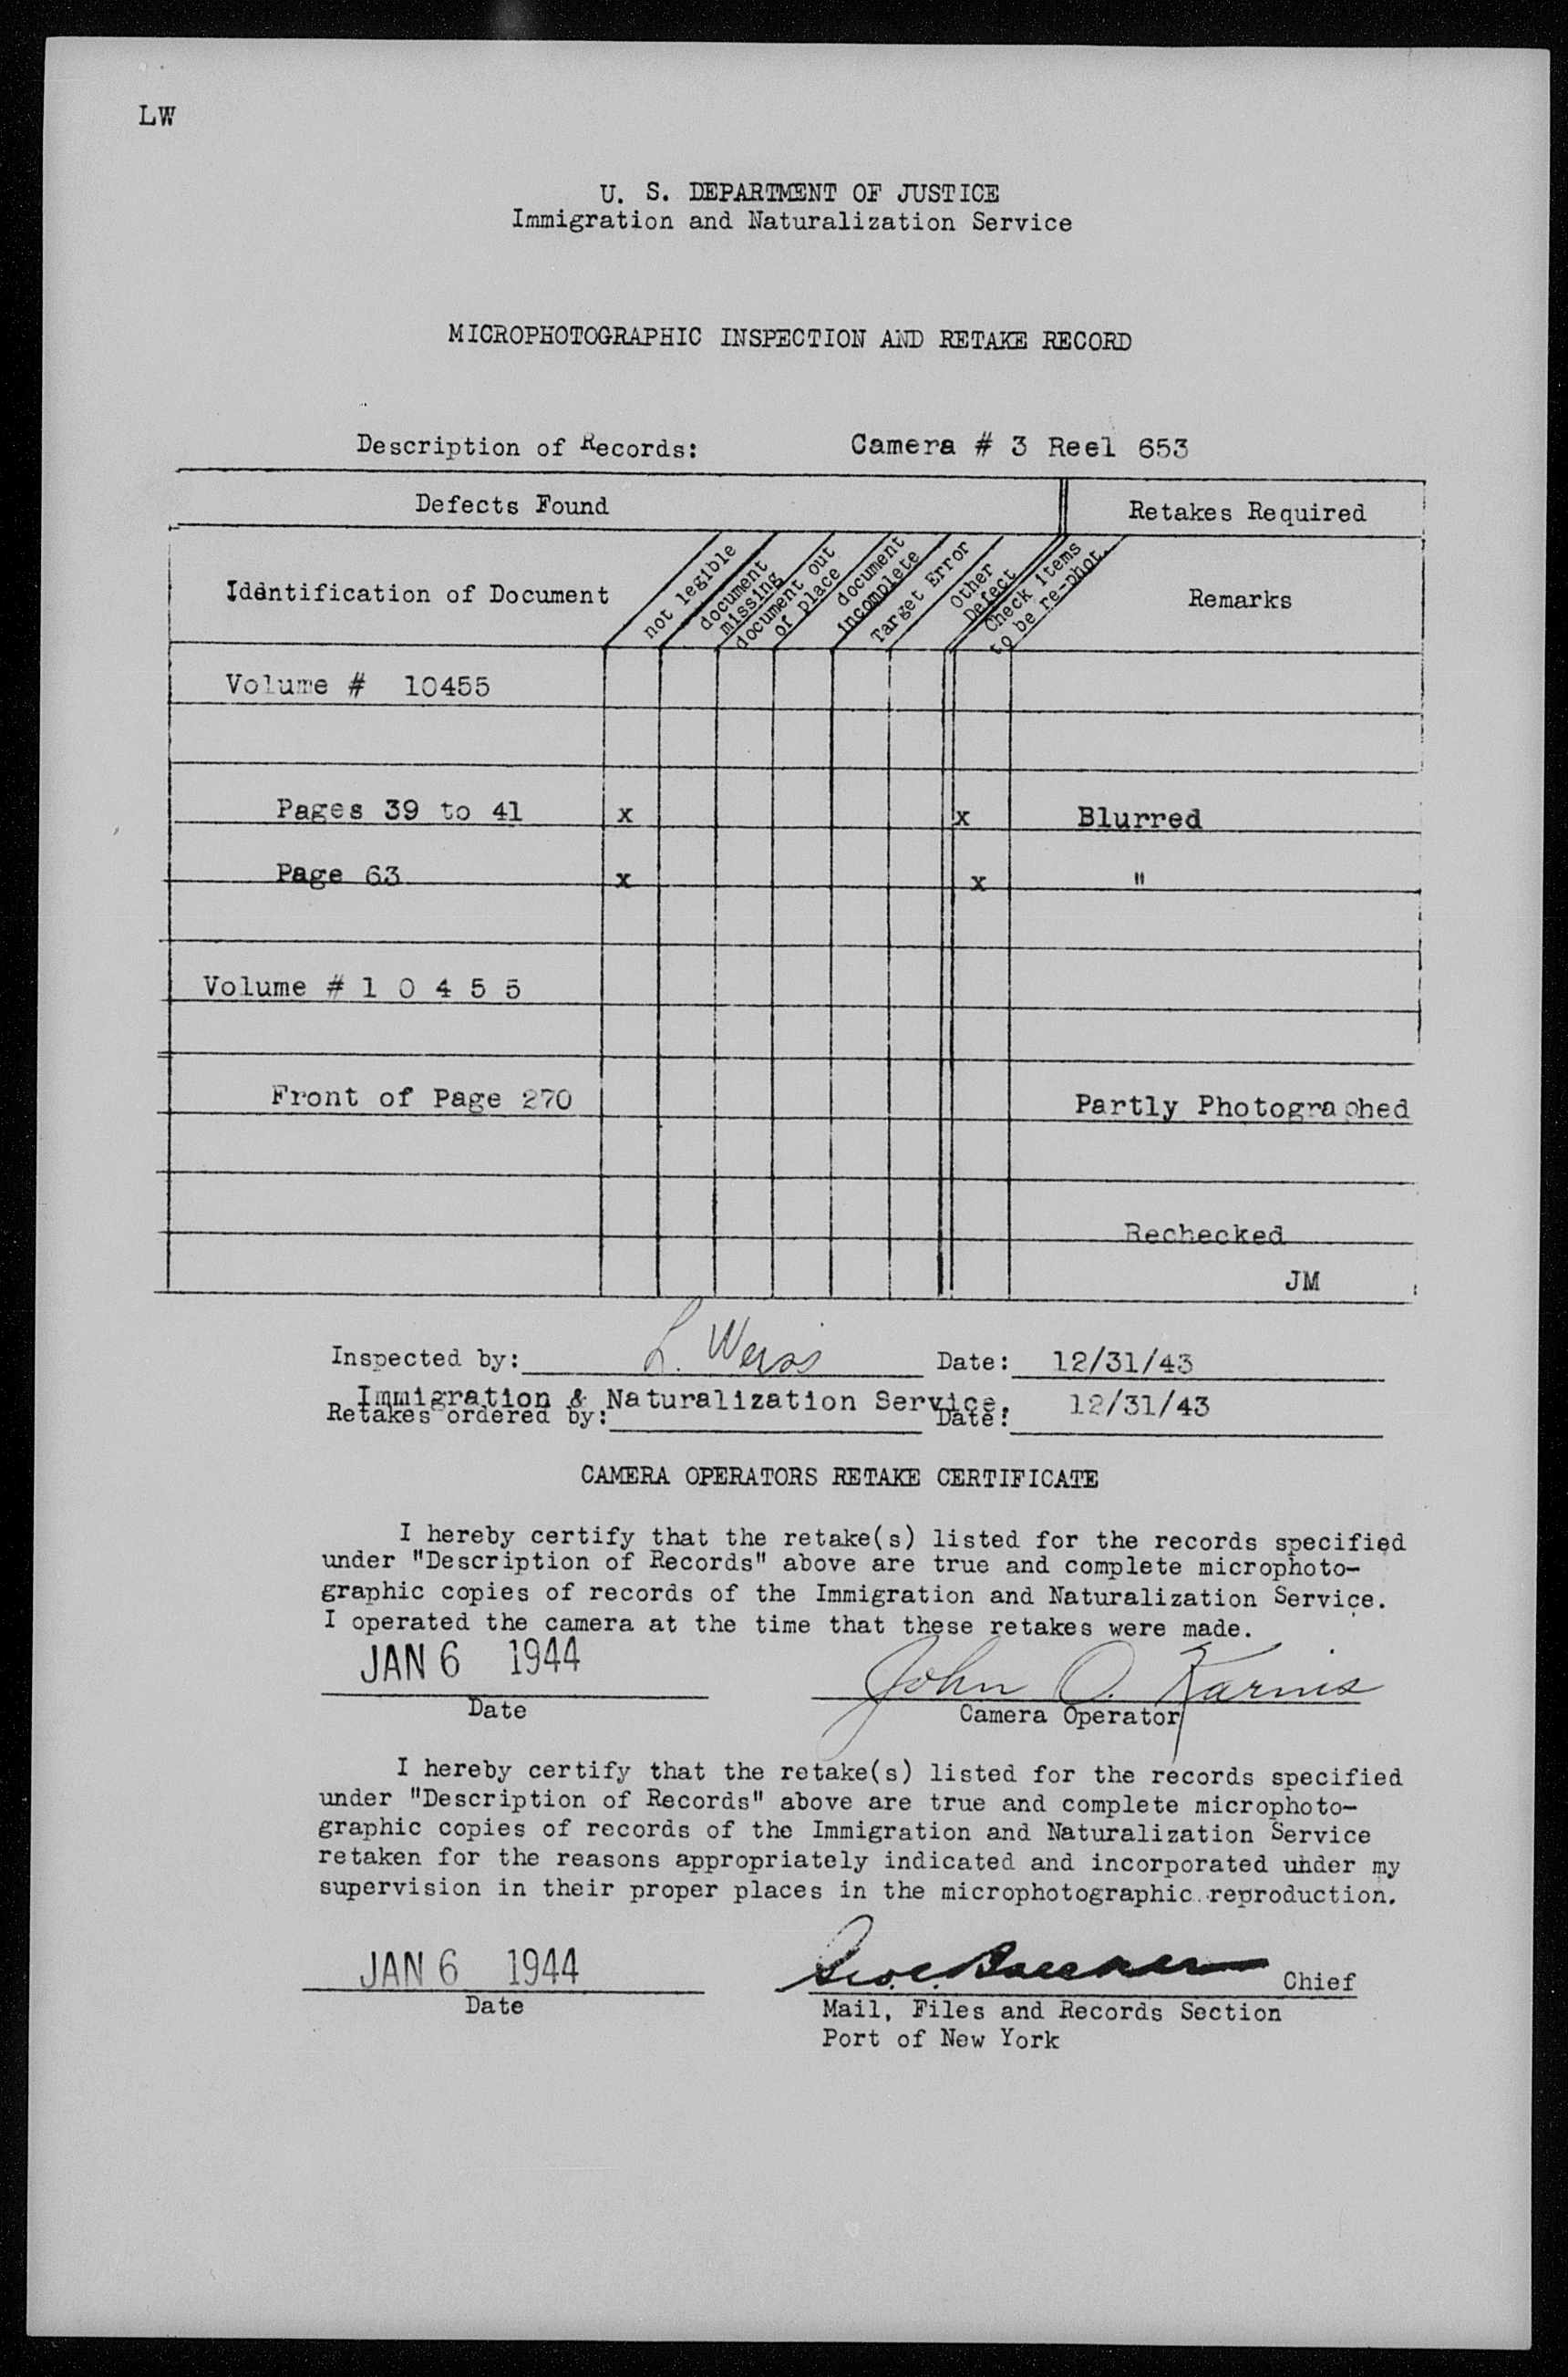 LW
U. S. DEPARTMENT OF JUSTICE
Immigration and Naturalization Service
MICROPHOTOGRAPHIC INSPECTION AND RETAKE RECORD
Description of Records: Camera # 3 Reel 653
Defects Found Retakes Required
Identification of Document not legible document missing document out of place document incomplete Target Error Other Defect Check items to be re-phot. Remarks
Volume # 10455
Pages 39 to 41 x x Blurred
Page 63 x x "
Volume # 1 0 4 5 5
Front of Page 270 Partly Photographed
Rechecked
JM
Inspected by: L. Weiss Date: 12/31/43
Immigration & Naturalization Service. 12/31/43
Retakes ordered by: Date:
CAMERA OPERATORS RETAKE CERTIFICATE
I hereby certify that the retake(s) listed for the records specified
under "Description of Records" above are true and complete microphoto-
graphic copies of records of the Immigration and Naturalization Service.
I operated the camera at the time that these retakes were made.
JAN 6 1944 John O. Karnis
Date Camera Operator
I hereby certify that the retake(s) listed for the records specified
under "Description of Records" above are true and complete microphoto-
graphic copies of records of the Immigration and Naturalization Service
retaken for the reasons appropriately indicated and incorporated under my
supervision in their proper places in the microphotographic reproduction.
JAN 6 1944 Chief
Date Mail, Files and Records Section
Port of New York